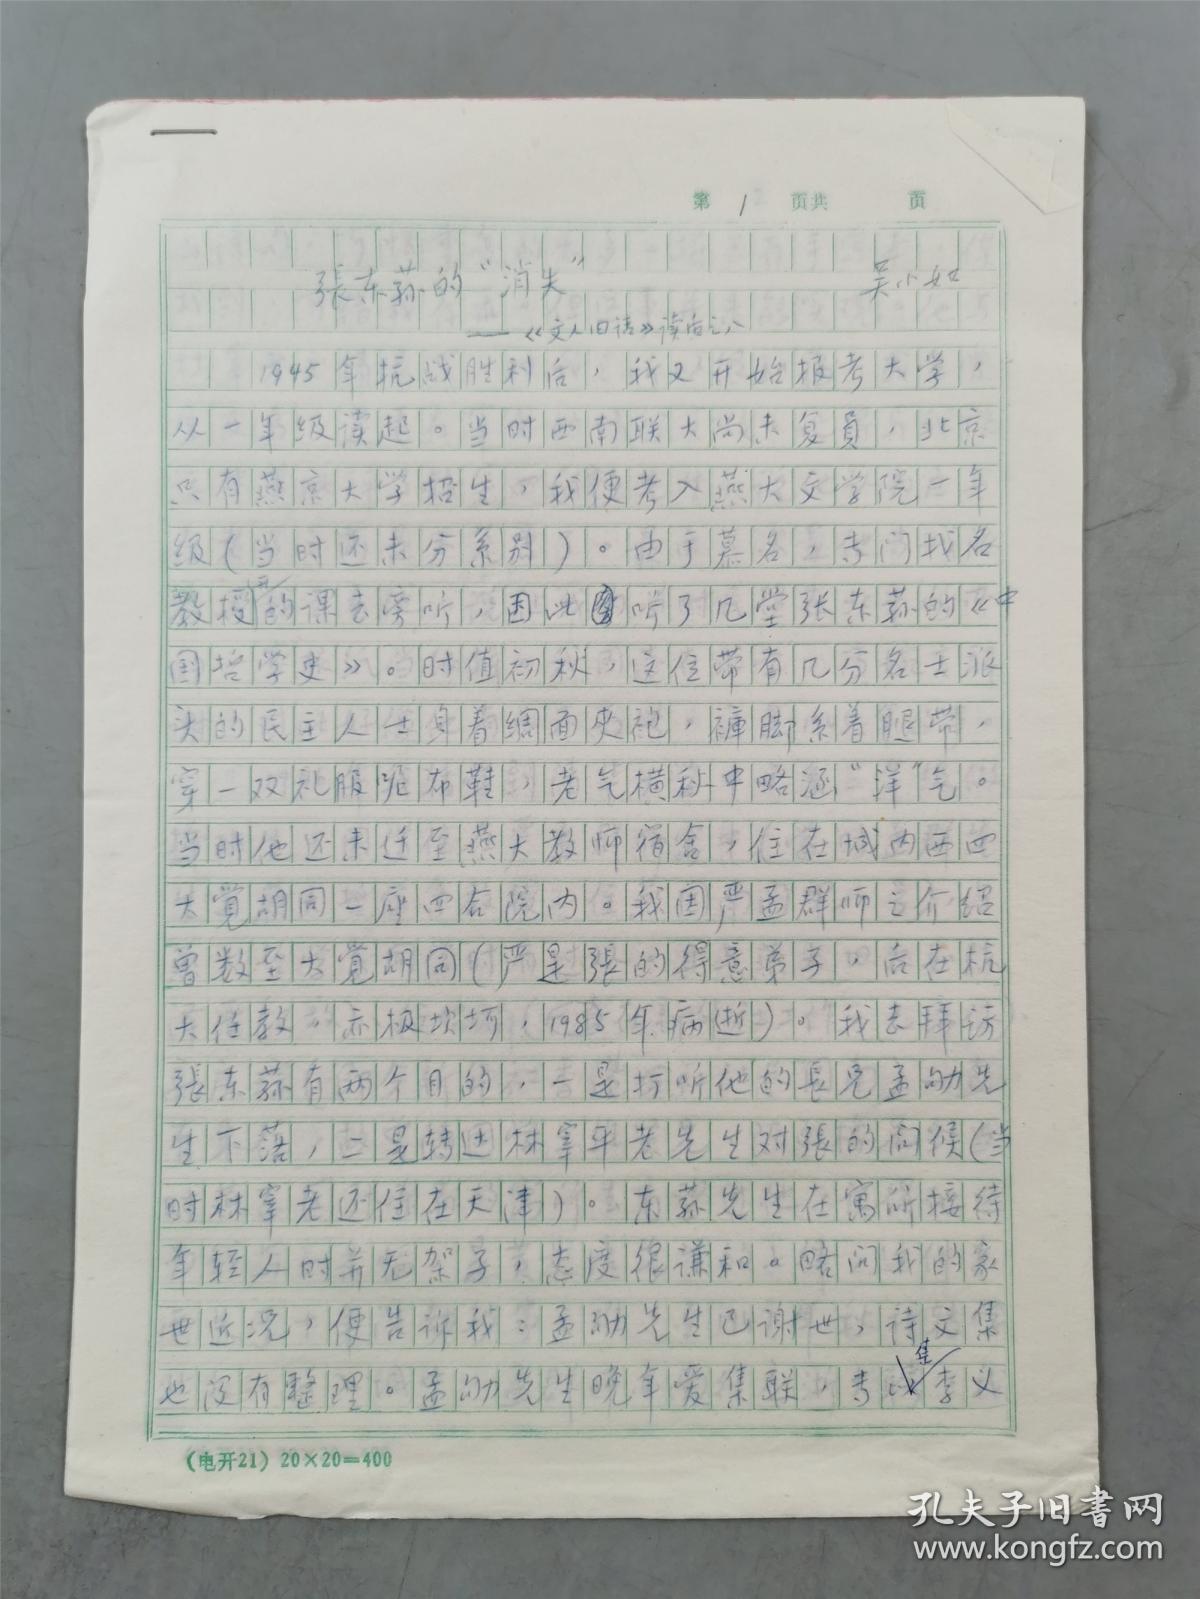 第1页共 页
張东荪的“消失” 吴小如
——《文人旧话》读后之八
1945年抗战胜利后，我又开始报考大学，
从一年级读起。当时西南联大尚未复員，北京
只有燕京大学招生，我便考入燕大文学院一年
级（当时还未分系别）。由于慕名，专门找名
教授的课去旁听，因此听了几堂张东荪的《中
国哲学史》。时值初秋，这位带有几分名士派
头的民主人士身着绸面夹袍，裤脚系着腿带，
穿一双礼服呢布鞋，老气横秋中略涵“洋”气。
当时他还未迁至燕大教师宿舍，住在城内西四
大觉胡同一座四合院内。我因严孟群师之介绍
曾数至大觉胡同（严是張的得意弟子，后在杭
大任教，亦极坎坷，1985年病逝）。我去拜访
張东荪有两个目的，一是打听他的長兄孟劬先
生下落，二是转达林宰平老先生对張的问候（当
时林宰老还住在天津）。东荪先生在寓所接待
年轻人时并无架子，态度很谦和。略问我的家
世近况，便告诉我：孟劬先生已谢世，诗文集
也没有整理。孟劬先生晚年爱集联，专集李义
（电开21）20×20=400
孔夫子旧書网
www.kongfz.com